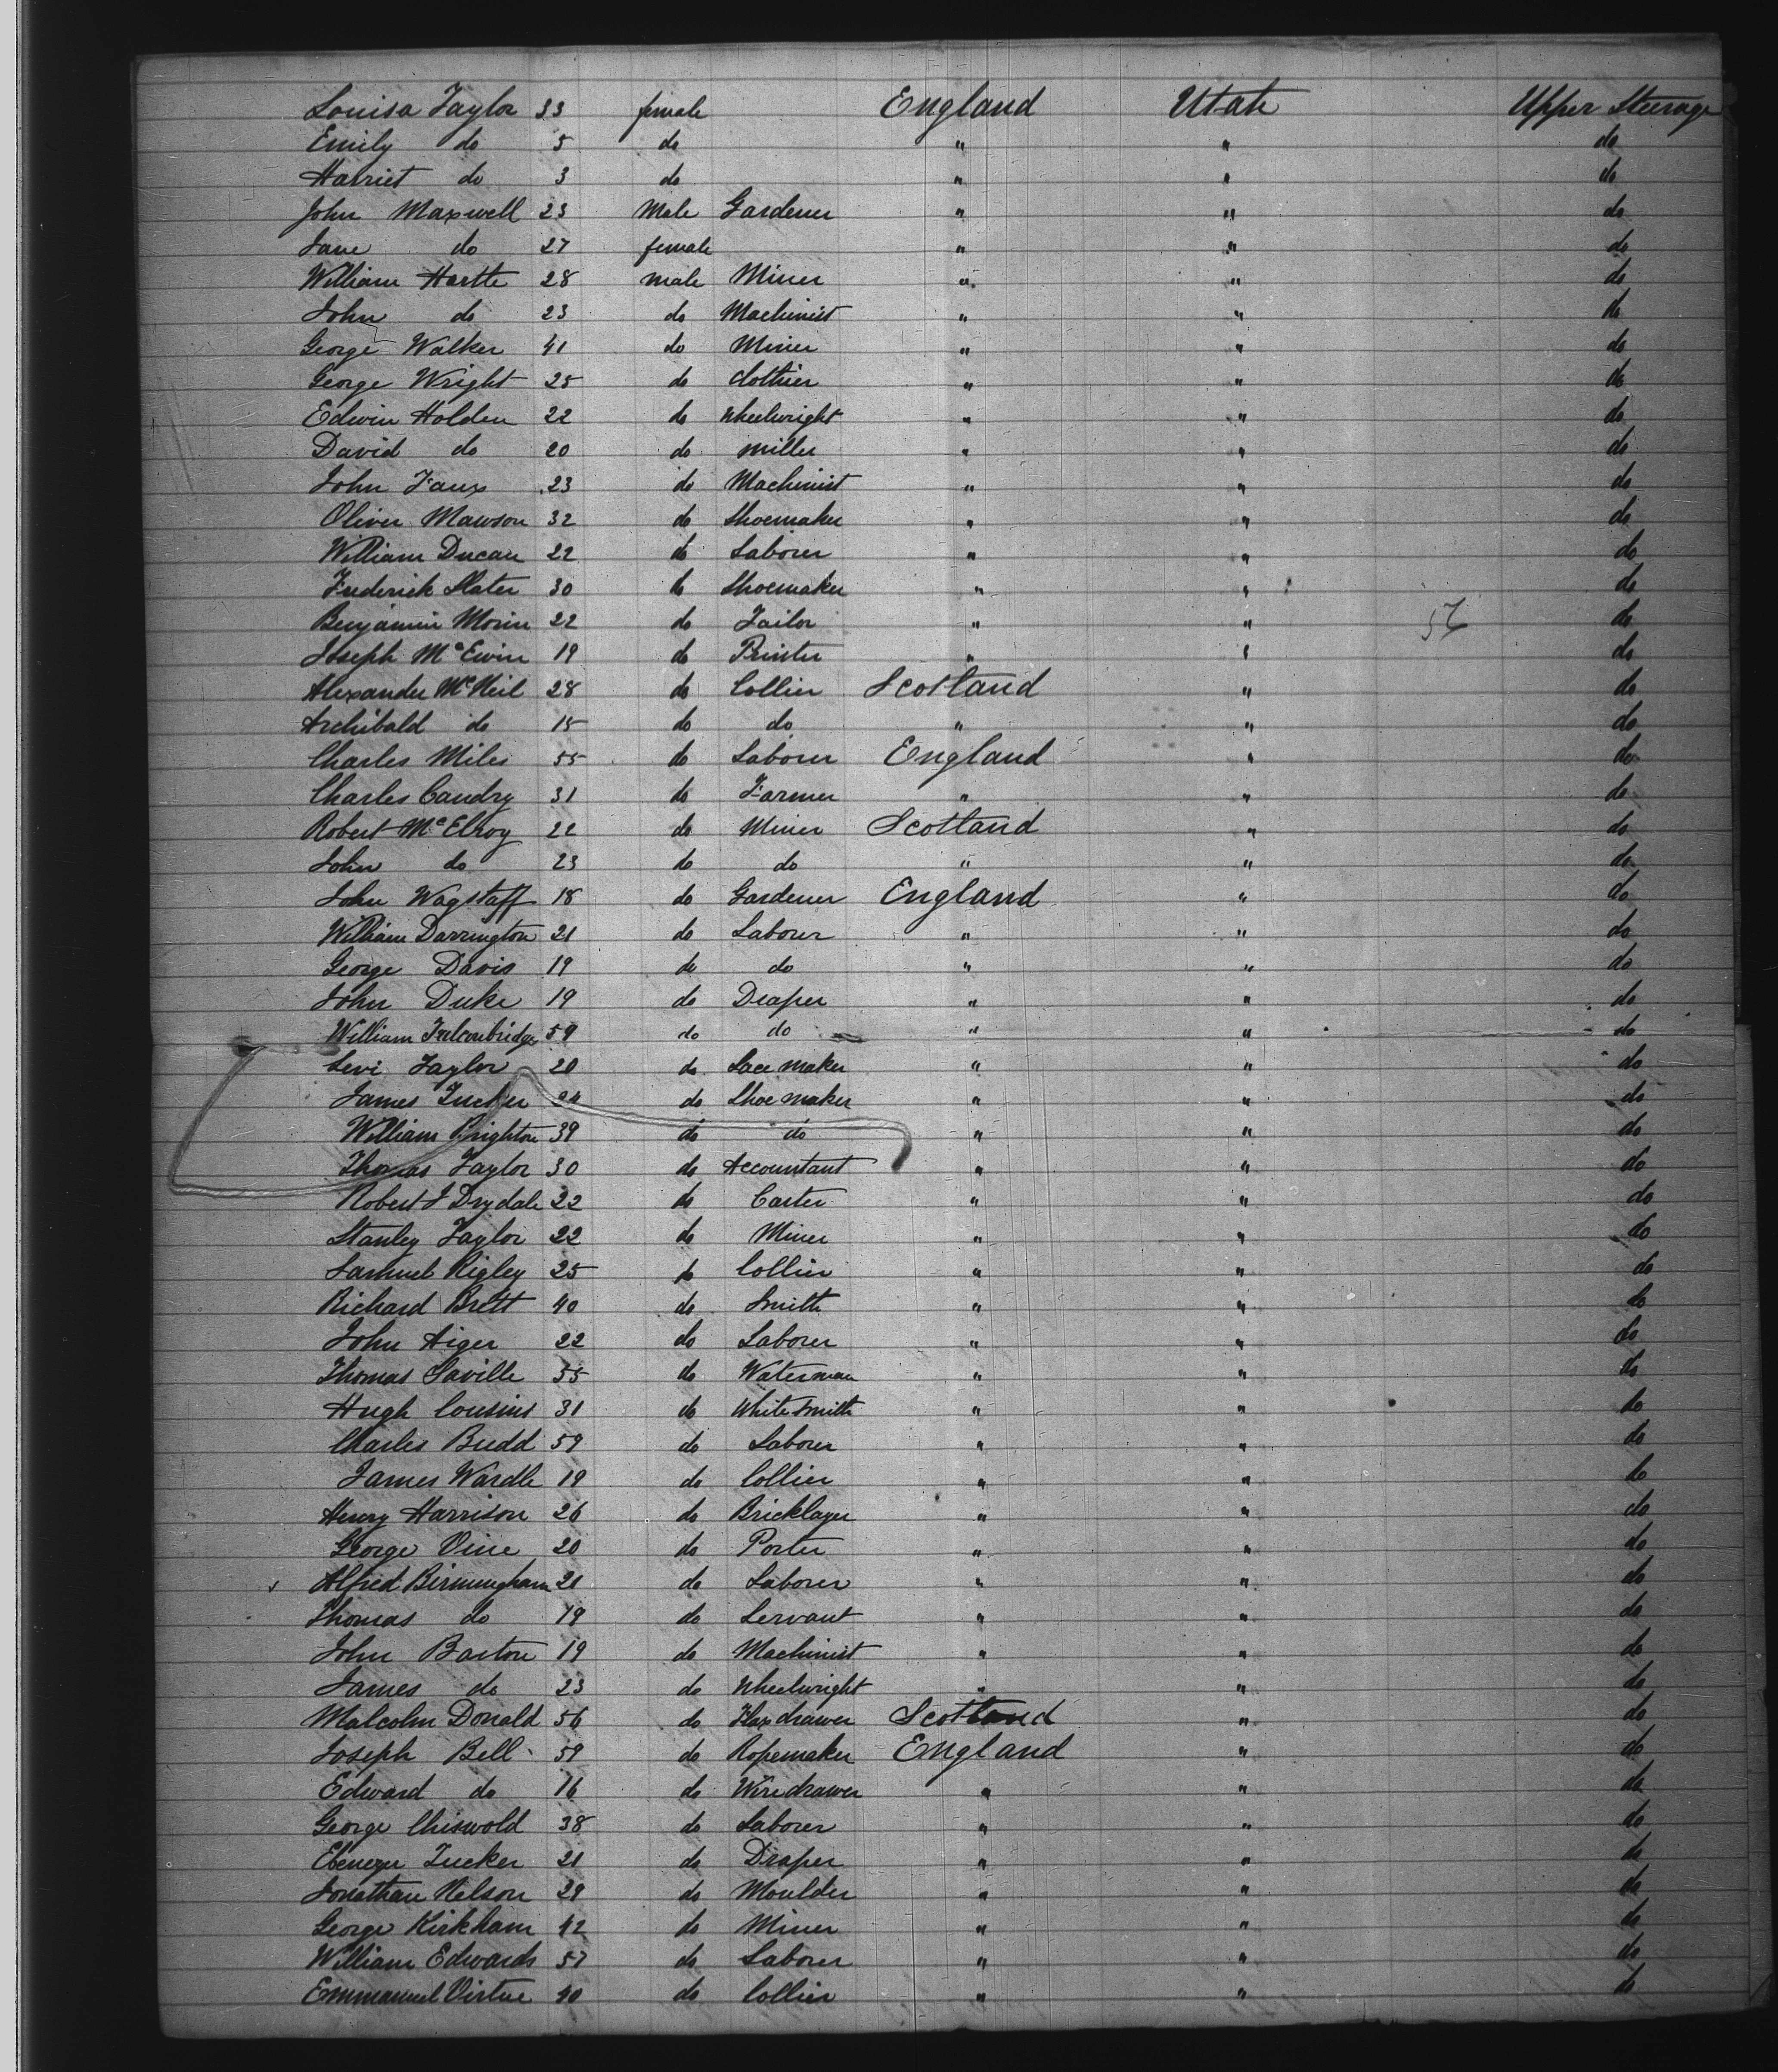 Louisa Taylor 33 female England Utah Upper Steerage
Emily do 5 do " " do
Harriet do 3 do " " do
John Maxwell 23 Male Gardener " " do
Jane do 27 female " " do
William Hartle 28 male Miner " " do
John do 23 do Machinist " " do
George Walker 41 do Miner " " do
George Wright 25 do Clothier " " do
Edwin Holden 22 do Wheelwright " " do
David do 20 do miller " " do
John Faux 23 do Machinist " " do
Oliver Mawson 32 do Shoemaker " " do
William Ducan 22 do Laborer " " do
Frederick Slater 30 do Shoemaker " " do
Benjamin Morin 22 do Tailor " " 57 do
Joseph McEwin 19 do Printer " " do
Alexander McNeil 28 do Collier Scotland " do
Archibald do 15 do do " " do
Charles Miles 55 do Laborer England " do
Charles Caudry 31 do Farmer " " do
Robert McElroy 22 do Miner Scotland " do
John do 23 do do " " do
John Wagstaff 18 do Gardener England " do
William Darrington 21 do Laborer " " do
George Davis 19 do do " " do
John Duke 19 do Draper " " do
William Falconbridge 59 do do " " do
Levi Taylor 20 do Lace maker " " do
James Tucker 24 do Shoe maker " " do
William Brighton 39 do do " " do
Thomas Taylor 30 do Accountant " " do
Robert J Drydale 22 do Carter " " do
Stanley Taylor 22 do Miner " " do
Samuel Rigley 25 do Collier " " do
Richard Brett 40 do Smith " " do
John Aiger 22 do Laborer " " do
Thomas Saville 55 do Waterman " " do
Hugh Cousins 31 do White smith " " do
Charles Budd 59 do Laborer " " do
James Wardle 19 do Collier " " do
Henry Harrison 26 do Bricklayer " " do
George Vine 20 do Porter " " do
Alfred Birmingham 21 do Laborer " " do
Thomas do 19 do Servant " " do
John Barton 19 do Machinist " " do
James do 23 do Wheelwright " " do
Malcolm Donald 56 do Flax drawer Scotland " do
Joseph Bell 59 do Ropemaker England " do
Edward do 16 do Wire drawer " " do
George Chiswold 38 do Laborer " " do
Ebenezer Tucker 21 do Draper " " do
Jonathan Nelson 29 do Moulder " " do
George Kirkham 42 do Miner " " do
William Edwards 57 do Laborer " " do
Emmanuel Virtue 40 do Collier " " do